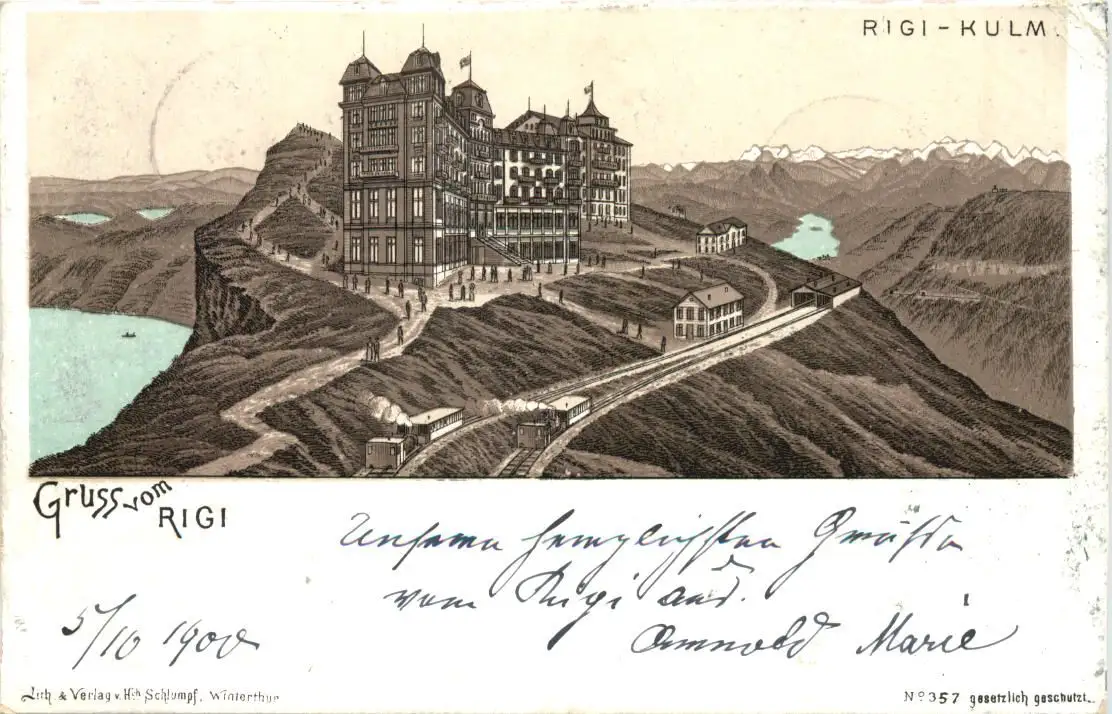 RIGI-KULM.
Gruss vom
RIGI
Unsern herzlichsten Grüße
vom Rigi aus.
Arnold Marie
5/10 1900
Lith. & Verlag v. Hch Schlumpf, Winterthur
No 357 gesetzlich geschützt.